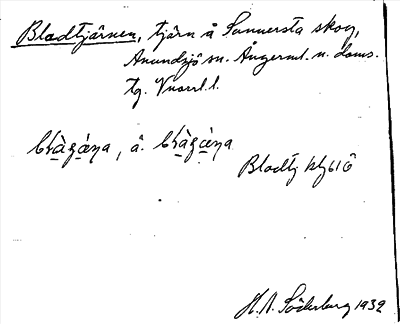 Bladtjärnen, tjärn å Sunnersta skog,
Anundsjö sn. Ångerml. n. doms.
tg. Vnorrl. l.
Bladtj kbl 61 Ö
H. A. Söderberg 1932